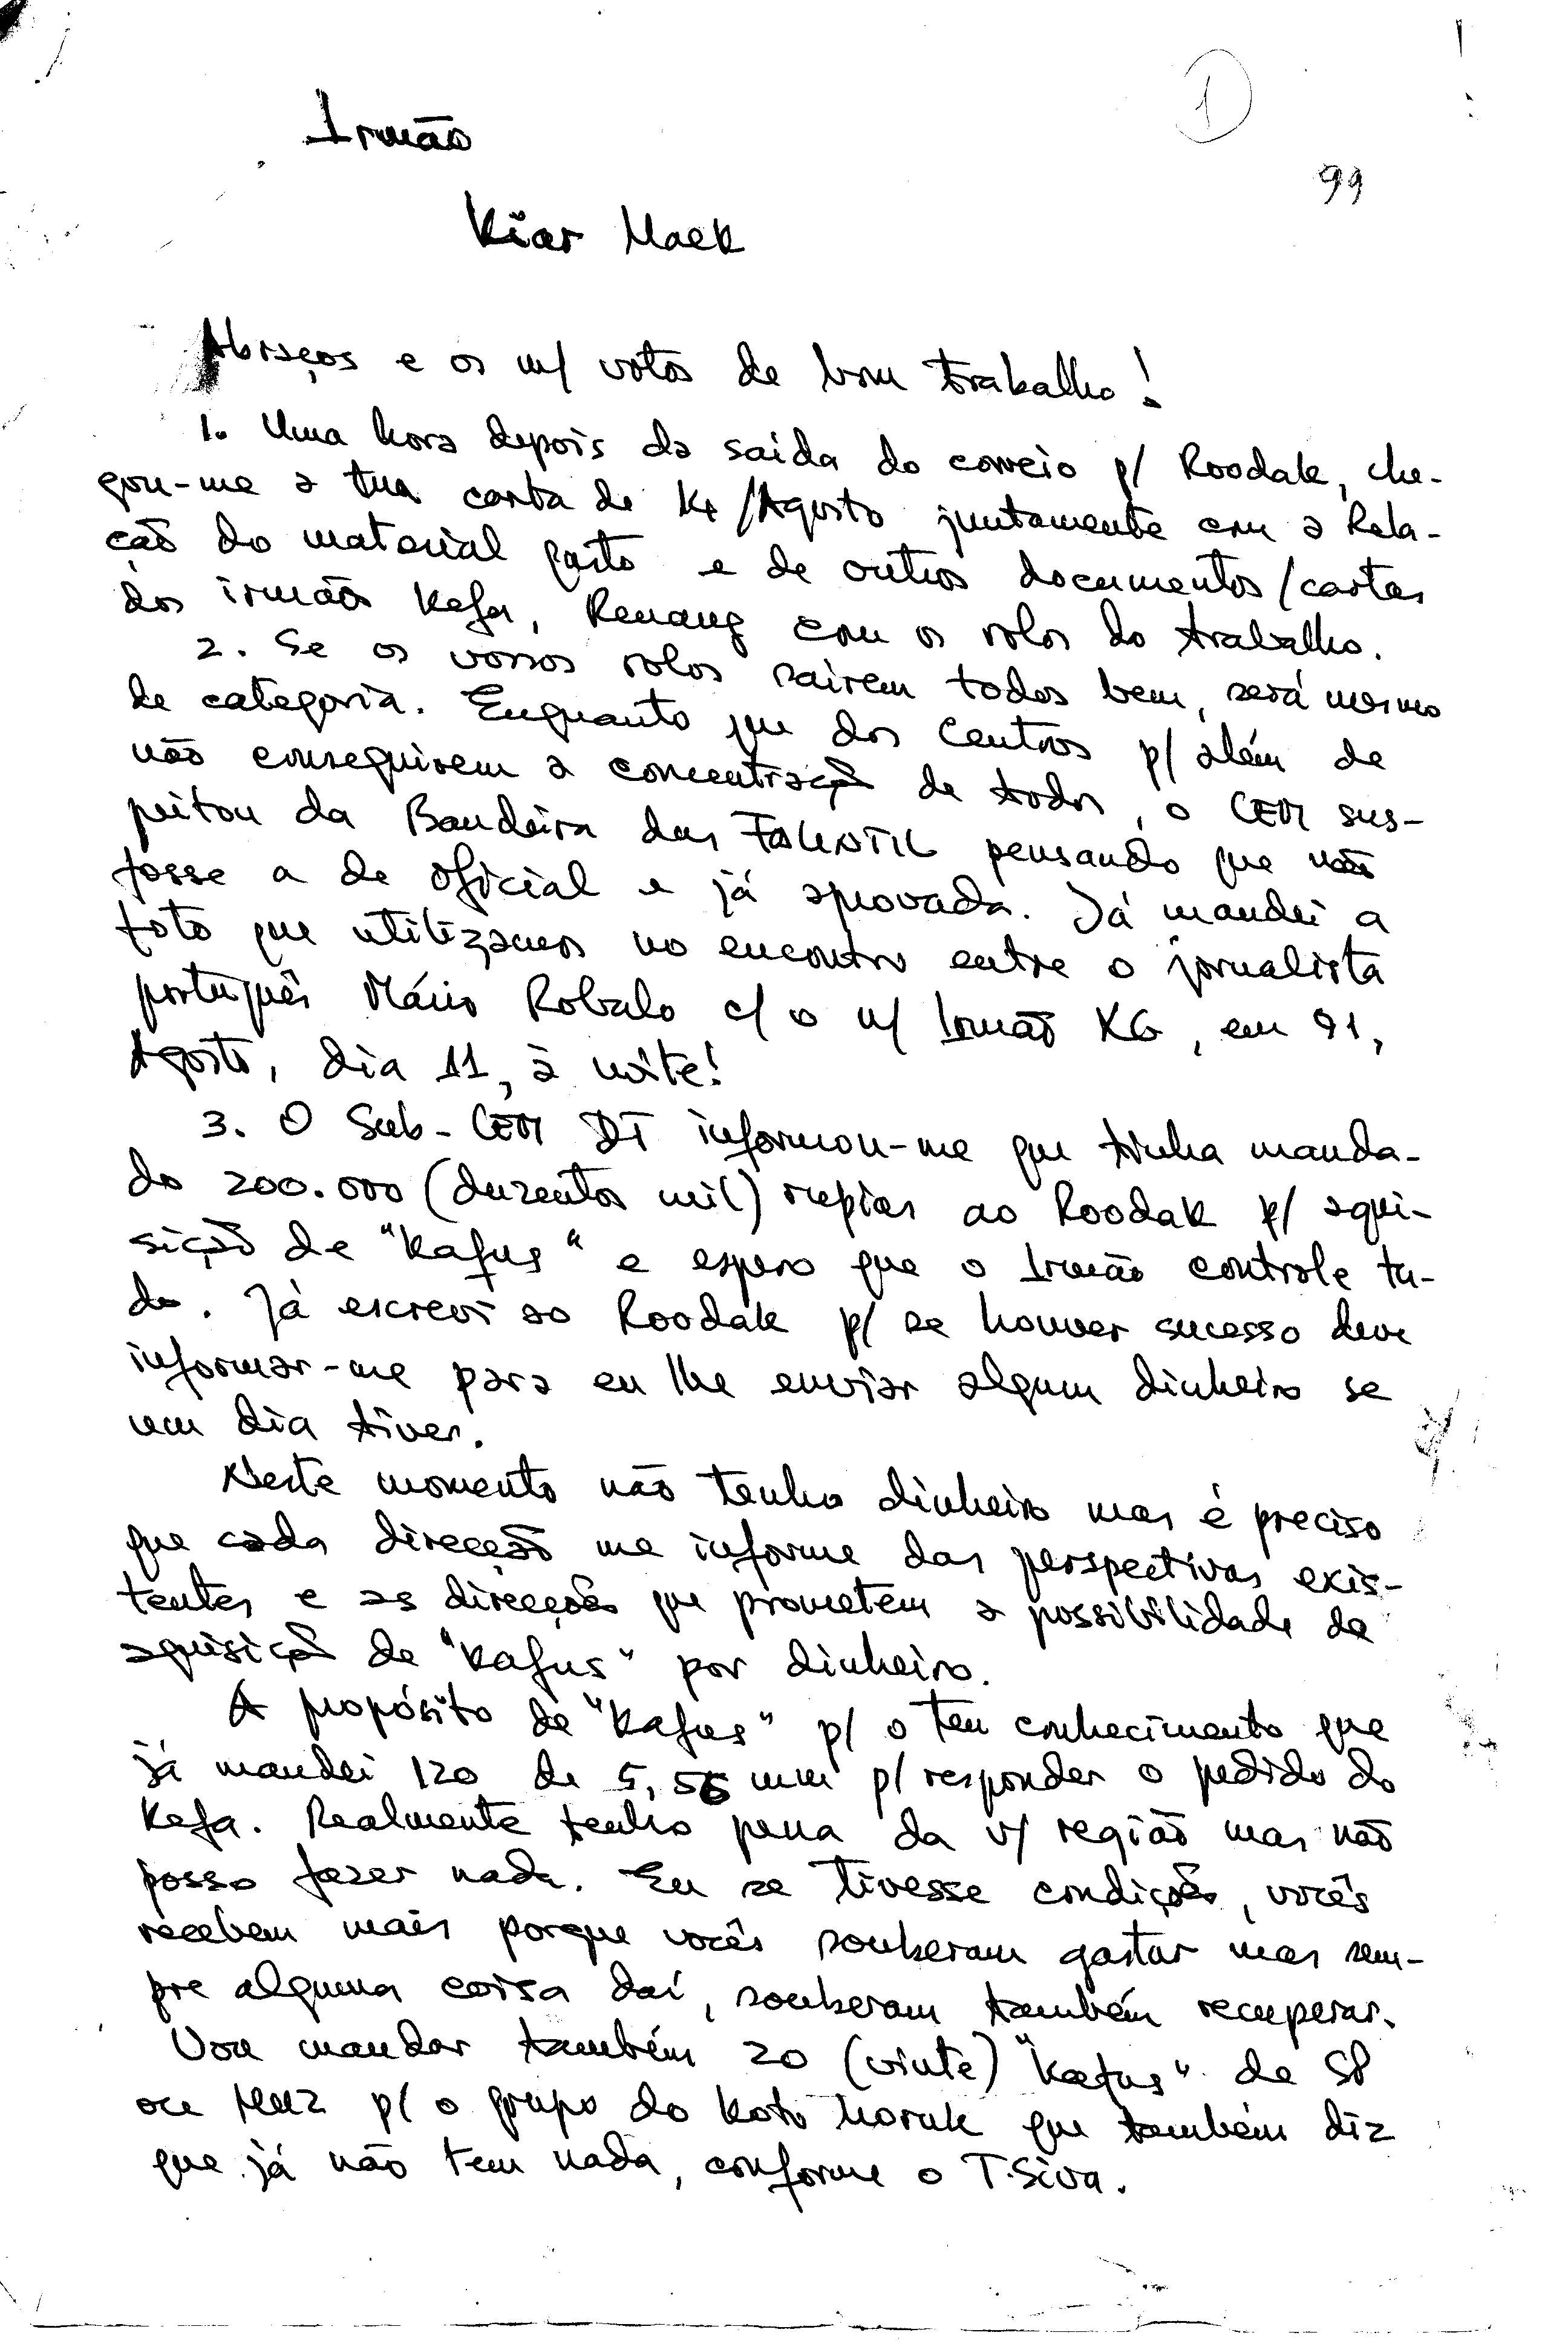 1
99
Irmão
Kiar Maek
Abraços e os m/ votos de bom trabalho!
1. Uma hora depois da saída do correio p/ Roodak, che-
gou-me a tua carta de 14/Agosto juntamente com a Rela-
ção do material gasto e de outros documentos/cartas
dos irmãos Kefa, Renang com os rolos do trabalho.
2. Se os vossos rolos sairem todos bem, será mesmo
de categoria. Enquanto que dos Centros p/ além de
não conseguirem a concentração de todos, o CEM sus-
peitou da Bandeira das FALINTIL pensando que não
fosse a de oficial e já aprovada. Já mandei a
foto que utilizamos no encontro entre o jornalista
português Mário Robalo c/ o n/ Irmão KG, em 91,
Agosto, dia 11, à noite!
3. O Sub-CEM DT informou-me que tinha manda-
do 200.000 (duzentos mil) rupias ao Roodak p/ aqui-
sição de "Kafus" e espero que o Irmão controle tu-
do. Já escrevi ao Roodak p/ se houver sucesso deve
informar-me para eu lhe enviar algum dinheiro se
um dia tiver.
Neste momento não tenho dinheiro mas é preciso
que cada direcção me informe das perspectivas exis-
tentes e as direcções que prometem a possibilidade de
aquisição de "Kafus" por dinheiro.
A propósito de "Kafus" p/ o teu conhecimento que
já mandei 120 de 5,56 mm p/ responder o pedido do
Kefa. Realmente tenho pena da v/ região mas não
posso fazer nada. Eu se tivesse condições, vocês
recebem mais porque vocês souberam gastar mas sem-
pre alguma coisa daí, souberam também recuperar.
Vou mandar também 20 (vinte) "Kafus" de SP
ou p/ o grupo do Koto Moruk que também diz
que já não tem nada, conforme o T.Siva.